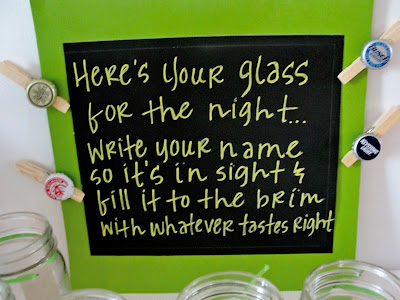 Here's your glass
for the night...
write your name
so it's in sight &
fill it to the brim
with whatever tastes right